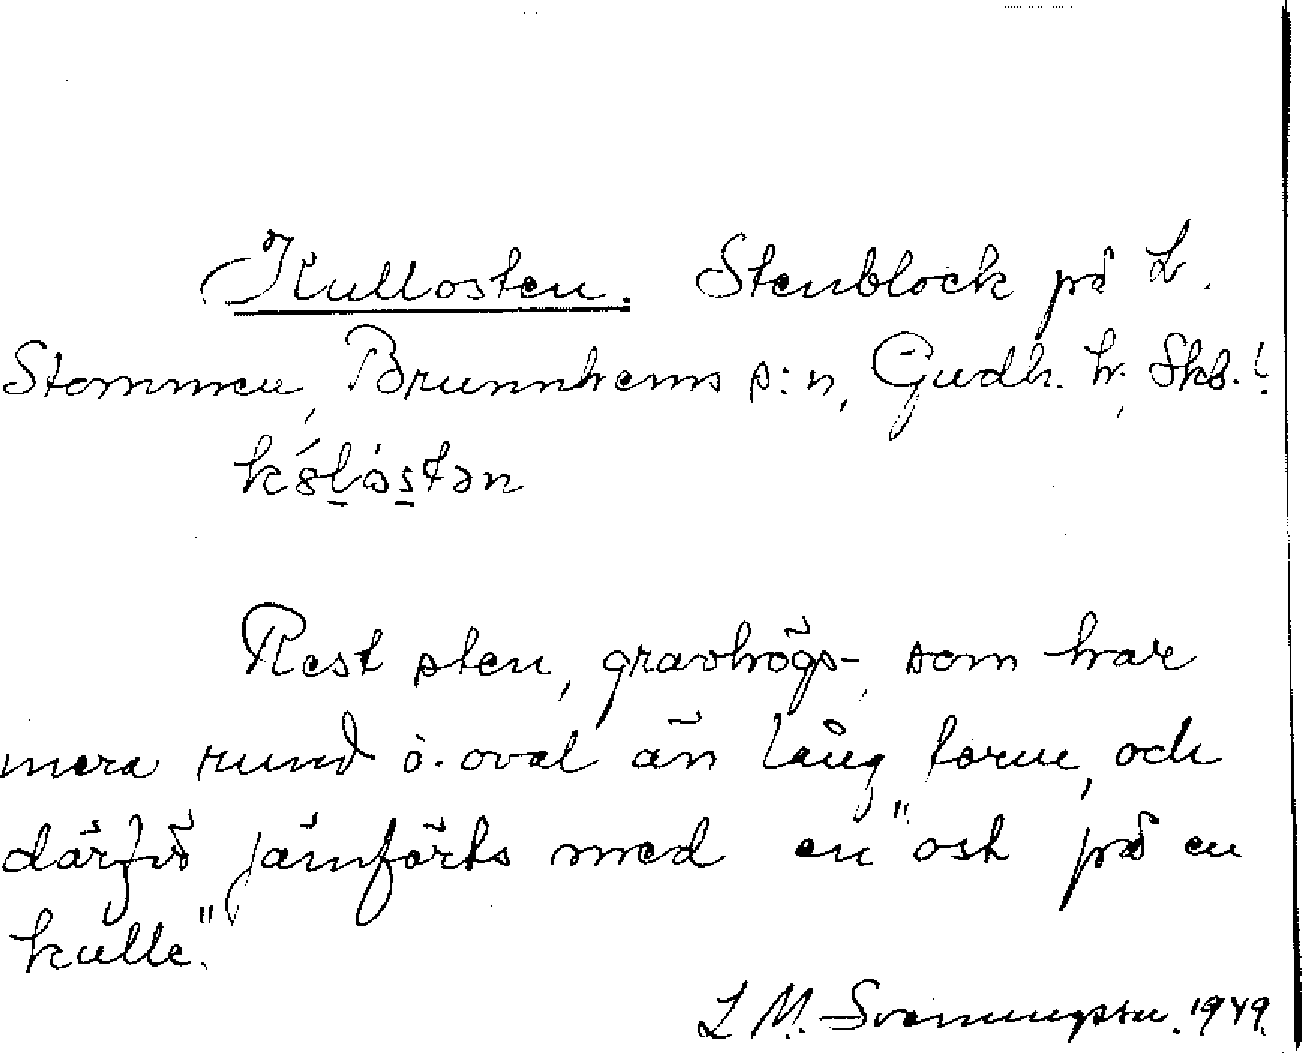 Kullosten. Stenblock på L.
Stommen, Brunnhems s:n, Gudh. h, Skb.!
kólòstən
Rest sten, gravhögs-, som har
mera rund o. oval än lång form, och
därför jämförts med en "ost på en
kulle".
L M. Svenungsson. 1949.